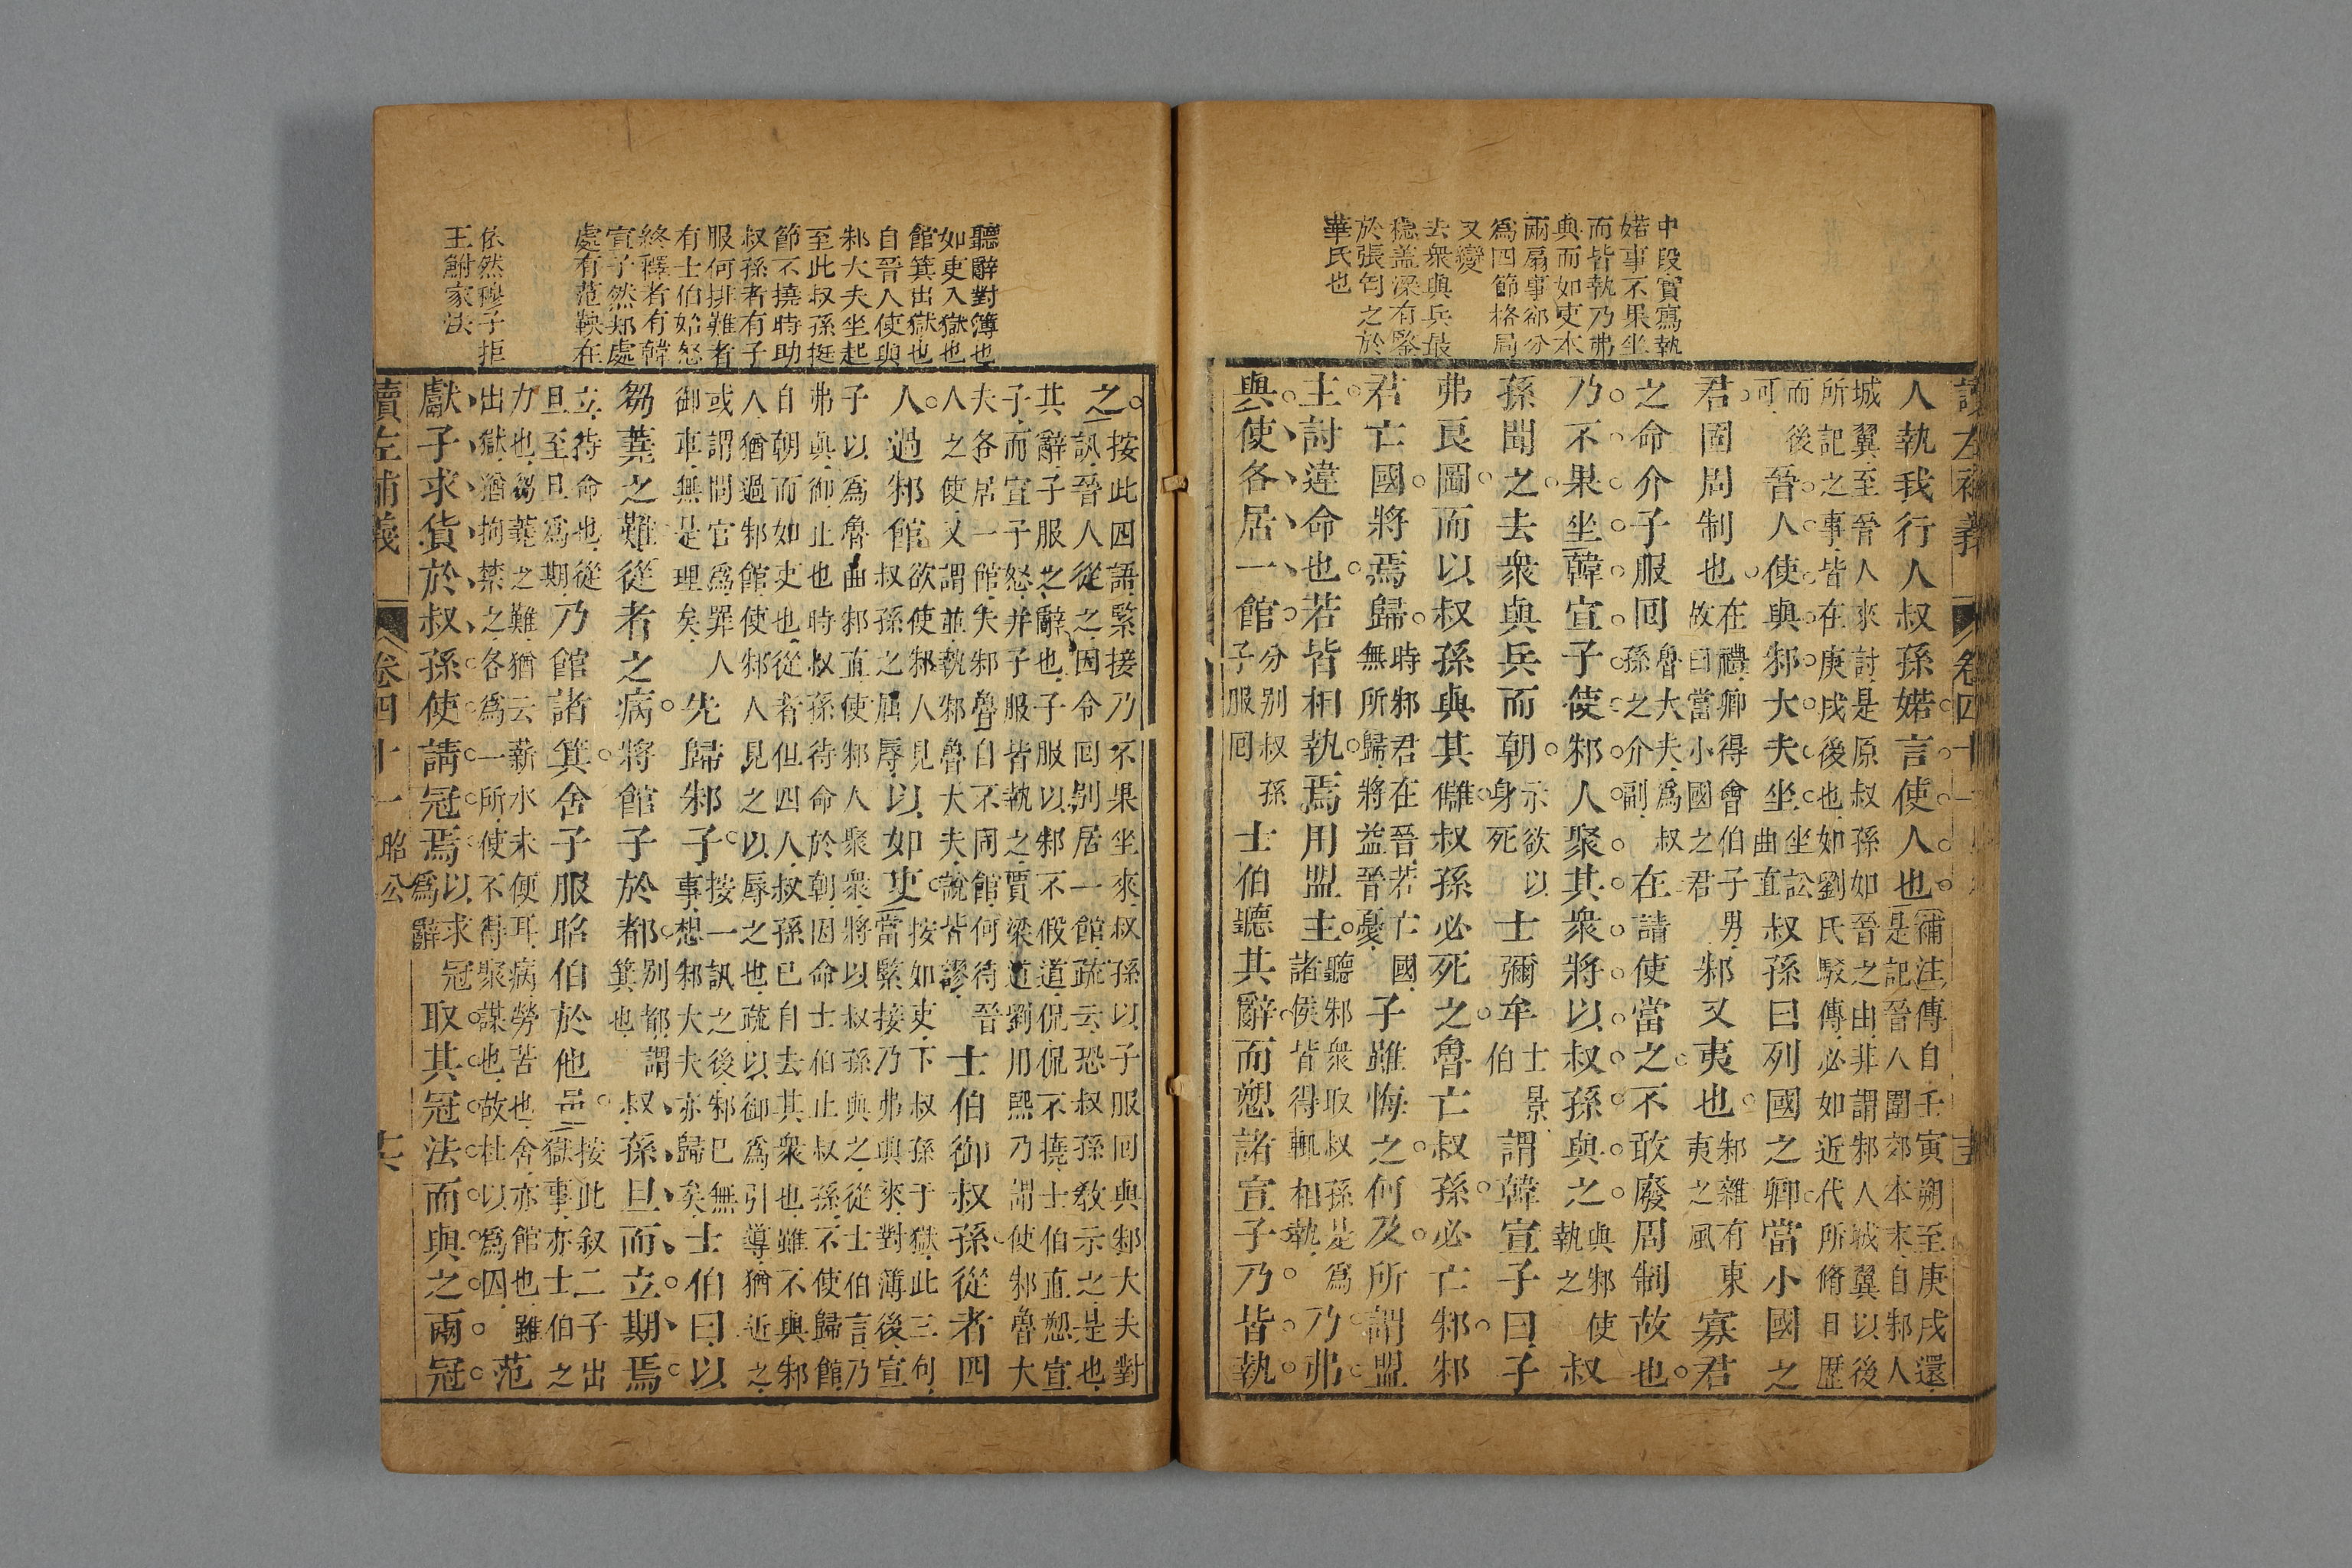 中段實寫執
婼事不果坐
而皆執乃弗
與而如吏本
兩扇事卻分
爲四節格局
又變
去衆與兵最
穏蓋深有鑒
於張匄之於
華氏也
讀左補義 卷四十一
人執我行人叔孫婼。言。使人。也。補注傳自壬寅朔至庚戌還
是記晉人圍郊本末自邾人
城翼至晉人來討是原叔孫如晉之由非謂邾人城翼以後
所記之事皆在庚戌後也如劉氏駁傳必如近代所脩日歴
而後
可晉人使與邾大夫坐坐訟
曲直叔孫曰列國之卿當小國之
君固周制也在禮卿得會伯子男
故曰當小國之君邾又夷也邾雜有東
夷之風寡君
之命介子服回魯大夫爲叔
孫之介副在請使當之不敢廢周制故也
乃不果坐韓宣子使邾人聚其衆將以叔孫與之與邾使
執之叔
孫聞之去衆與兵而朝示欲以
身死士彌牟士景
伯謂韓宣子曰子
弗良圖而以叔孫與其讎叔孫必死之魯亡叔孫必亡邾邾
君亡國將焉歸時邾君在晉若亡國
無所歸將益晉憂子雖悔之何及所謂盟
主討違命也若皆相執焉用盟主聽邾衆取叔孫是爲
諸侯皆得輒相執乃弗
與使各居一館分別叔孫
子服回士伯聽其辭而愬諸宣子乃皆執
聽辭對簿也
如吏入獄也
館箕出獄也
自晉人使與
邾大夫坐起
至此叔孫挺
節不撓時助
叔孫者有子
服何排難者
有士伯始怒
終釋者有韓
宣子然邾處
處有范鞅在
依然穆子拒
王鮒家法
之按此因語緊接乃不果坐來叔孫以子服回與邾大夫對
訊晉人從之因令回別居一館疏云恐叔孫教示之是也
其辭子服之辭也子服以邾不假道侃侃不撓士伯直愬宣
子而宣子怒并子服皆執之賈梁道劉用熙乃謂使邾魯大
夫各居一館夫邾魯自不同館何待晉
人之使又謂並執邾魯大夫說皆謬士伯御叔孫從者四
人過邾館欲使邾人見
叔孫之屈辱以如吏按如吏下叔孫于獄此三句
當緊接乃弗與來對簿後宣
子以爲魯曲邾直使邾人聚衆將以叔孫與之從士伯言乃
弗與御止也時叔孫待命於朝因命士伯止叔孫不使歸館
自朝而如吏也從者但四人叔孫已自去其衆也雖不與邾
人猶過邾館使邾人見之以辱之也疏以御爲引導猶近之
或謂問官爲罪人
御車無是理矣先歸邾子按一訊之後邾已無
事想邾大夫亦歸矣士伯曰以
芻蕘之難從者之病將館子於都別都謂
箕也叔孫旦而立期焉
立待命也從
旦至旦爲期乃館諸箕舍子服昭伯於他邑按此叙二子出
獄事亦士伯之
力也芻蕘之難猶云薪水未便耳病勞苦也舍亦館也雖
出獄猶拘禁之各爲一所使不得聚謀也故杜以爲囚范
獻子求貨於叔孫使請冠焉以求冠
爲辭取其冠法而與之兩冠
讀左補義 卷四十一 昭公